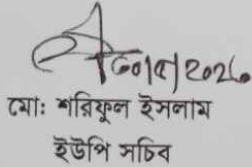 মো: শরিফুল ইসলাম
ইউপি সচিব